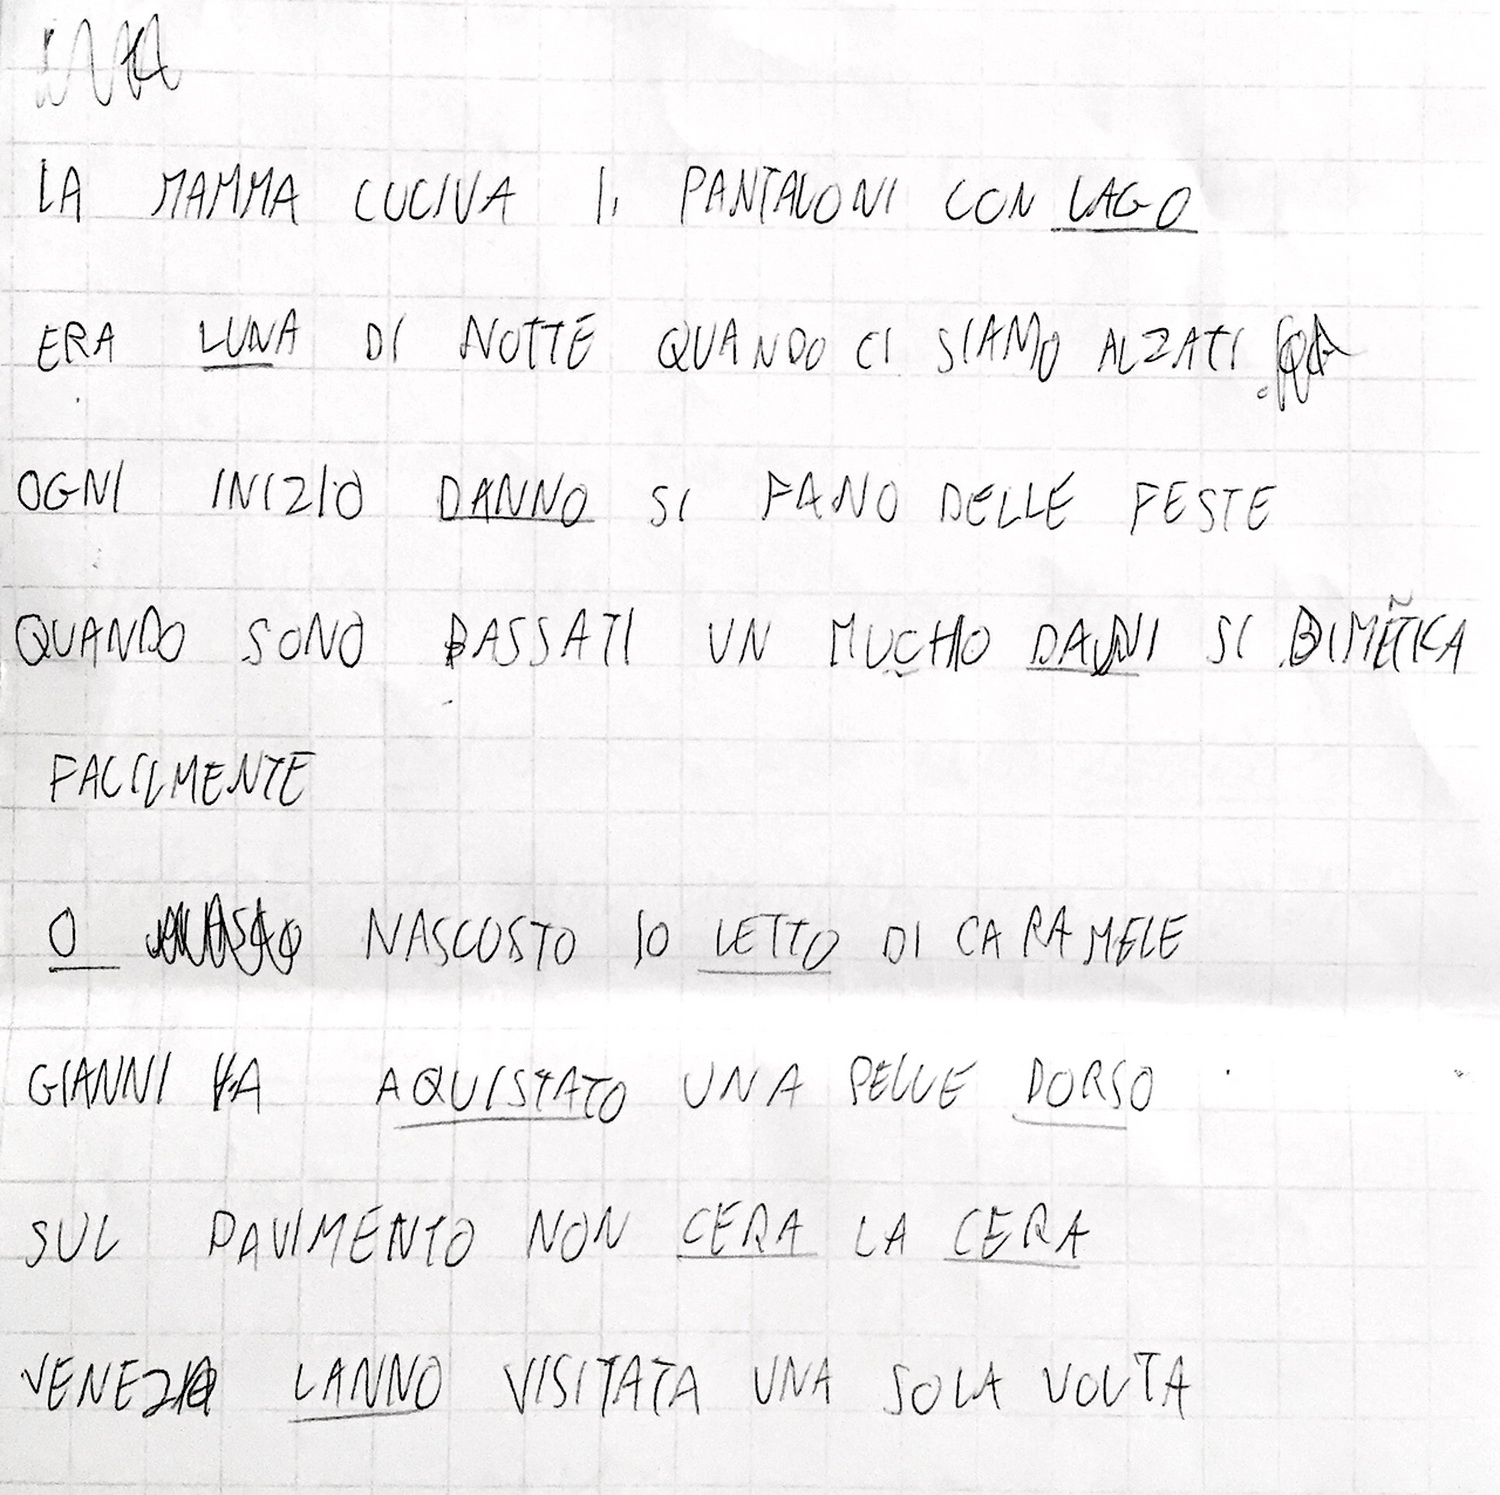 LA MAMMA CUCIVA I PANTALONI CON LAGO
ERA LUNA DI NOTTE QUANDO CI SIAMO ALZATI
OGNI INIZIO DANNO SI FANO DELLE FESTE
QUANDO SONO BASSATI UN MUCHIO DANNI SI BIMETICA
FACILMENTE
O NASCOSTO IO LETTO DI CARAMELE
GIANNI HA AQUISTATO UNA PELLE DORSO
SUL PAVIMENTO NON CERA LA CERA
VENEZIA LANNO VISITATA UNA SOLA VOLTA